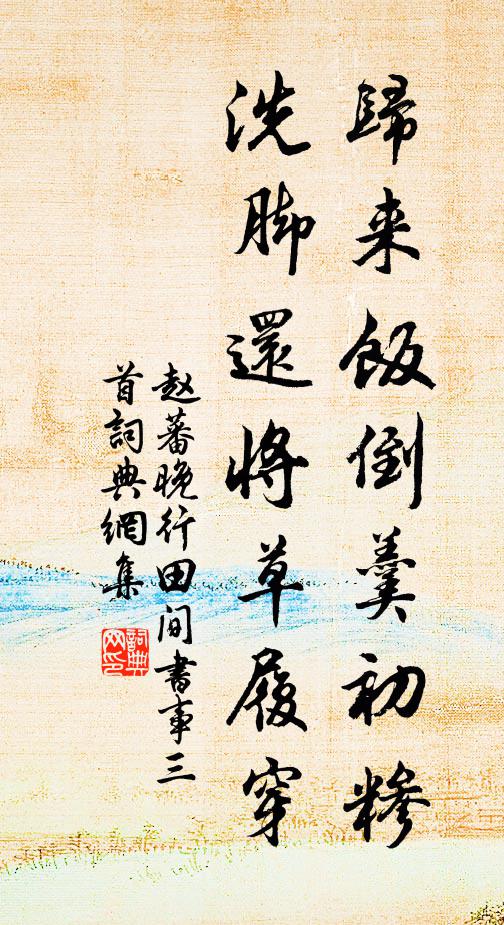 歸来飯倒羹初糝
洗脚還将草履穿
赵蕃晚行田间書事三
首詞典網集
詞典網印